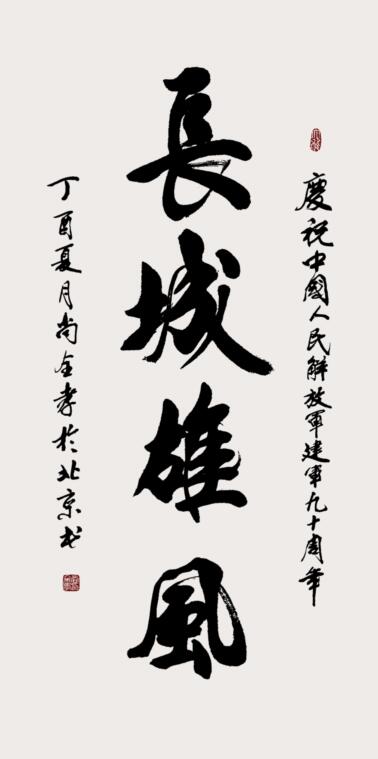 慶祝中國人民解放軍建軍九十周年
長城雄風
丁酉夏月尚金孝於北京书